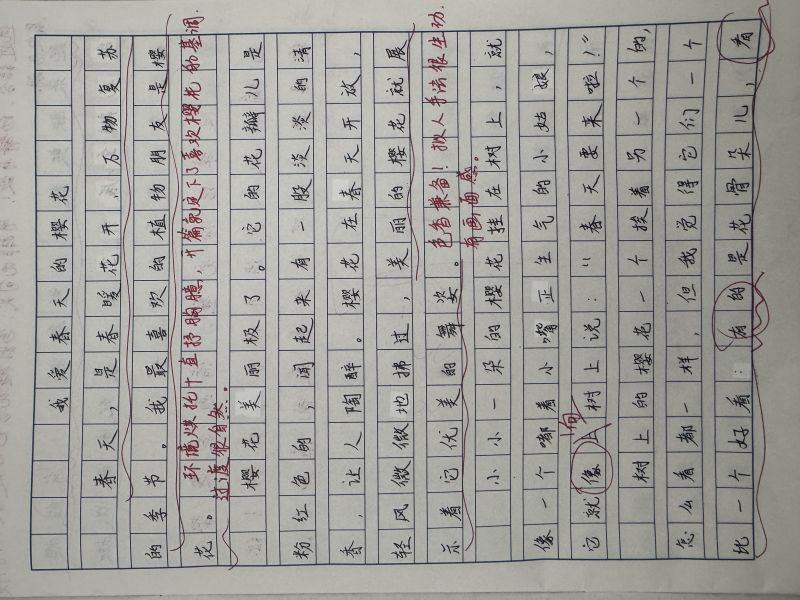 我爱春天的樱花
春天，是春暖花开，万物复苏
的季节。我最喜欢的植物朋友是樱
花。
环境烘托+直抒胸臆，开篇就定下了喜欢樱花的基调.
过渡很自然。
樱花美丽极了。它的花瓣儿是
粉红色的，闻起来有一股淡淡的清
香，让人陶醉。樱花在春天开放，
轻风微微地拂过，美丽的樱花就展
示着它优美的舞姿。
色香兼备！拟人手法很生动.
有画面感。
小小一朵的樱花挂在树上，就
像一个嘟着小嘴正生气的小姑娘，
向
它就像树上说：“春天要来啦！”
树上的樱花一个挨着另一个的，
怎么看都一样，但我觉得它们一个
比一个好看：有的是花骨朵儿，看